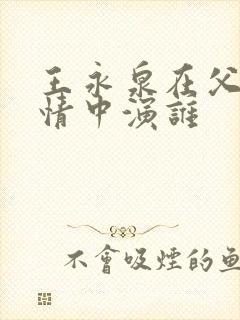 王永泉在父
情中演誰
不會吸煙的魚